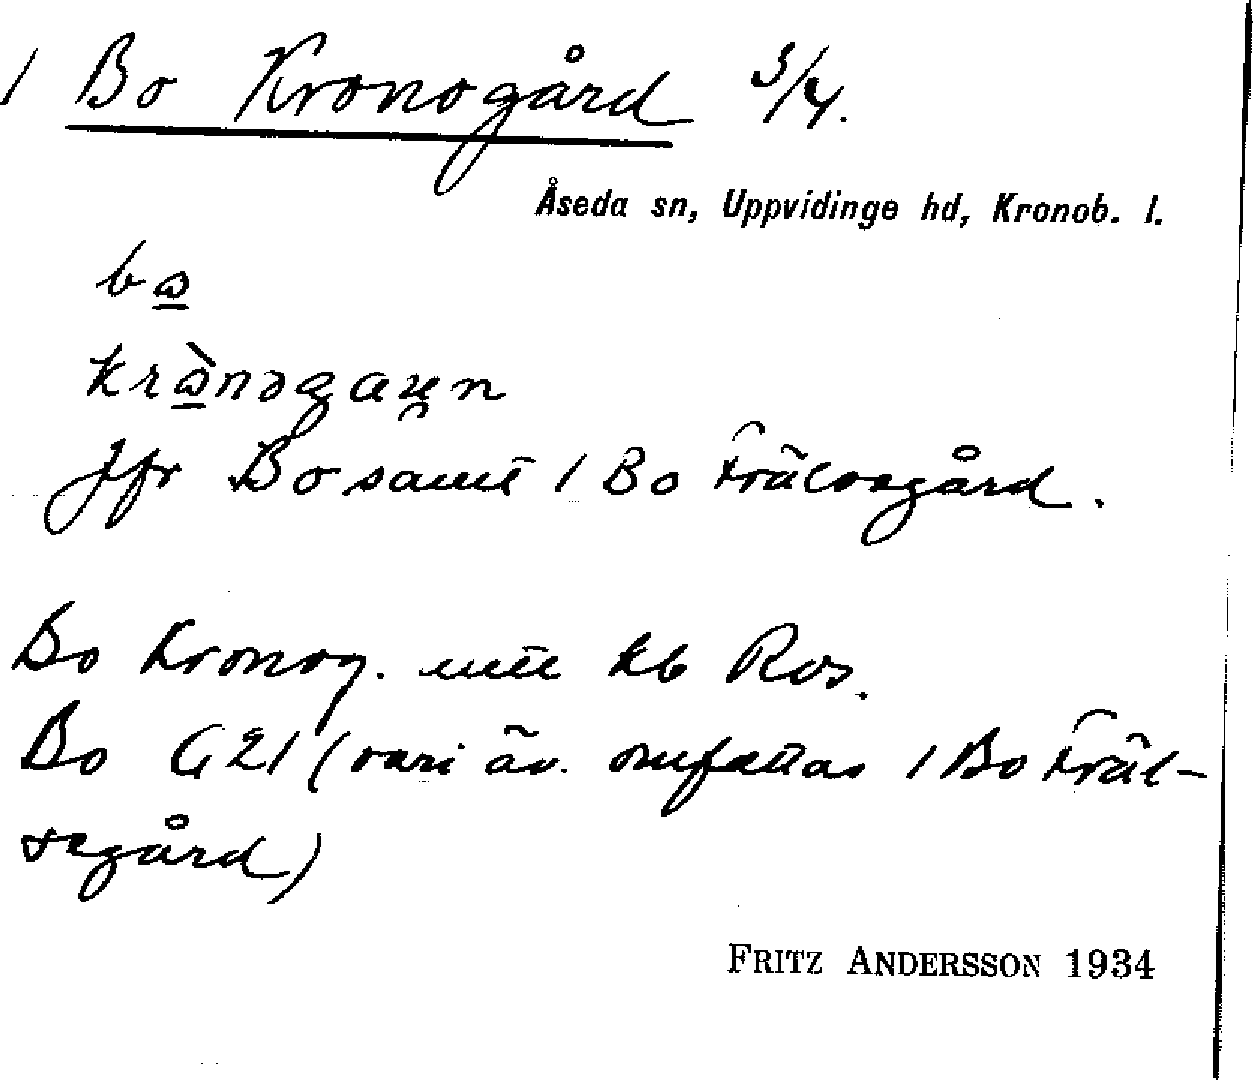 1 Bo Kronogård 3/4.
Åseda sn, Uppvidinge hd, Kronob. l.
Jfr Bo samt 1 Bo Frälsegård.
Bo Kronog. kb Ros.
Bo G21 (vari äv. omfattas 1 Bo Fräl-
segård)
FRITZ ANDERSSON 1934